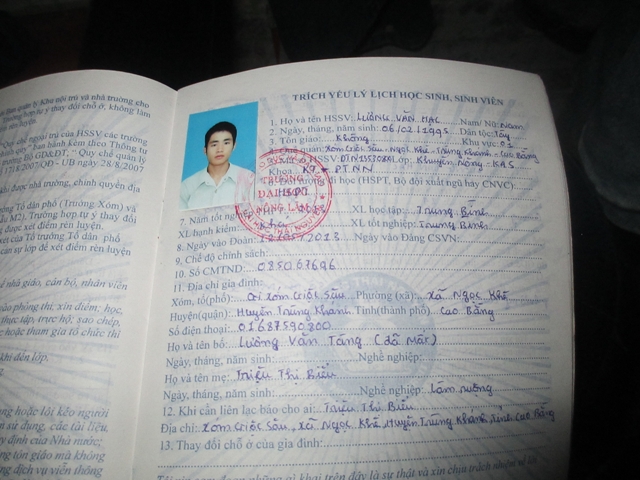 bản quản lý Khu nội trú và nhà trường cho
Trường hợp tự ý thay đổi chỗ ở, không làm
"Quy chế ngoại trú của HSSV các trường
ban hành kèm theo Thông tư
Bộ GD&ĐT, "Quy chế quản lý
1718/2007/QĐ - UB ngày 28/8/2007
khi được nhà trường, chính quyền địa
trưởng Tổ dân phố (Trưởng Xóm) và
mẫu M2). Trường hợp tự ý thay đổi
được xét điểm rèn luyện.
xét của Tổ trưởng Tổ dân phố
cán sự lớp để xét điểm rèn luyện
nhà giáo, cán bộ, nhân viên
vào phòng thi, xin điểm; học,
thực tập, trực hộ; sao chép,
hoặc tham gia tổ chức thi
khi đến lớp.
hoặc lôi kéo người
sử dụng, các tài liệu,
định của Nhà nước;
tôn giáo mà không
dịch vụ viễn thông
TRÍCH YẾU LÝ LỊCH HỌC SINH, SINH VIÊN
1. Họ và tên HSSV: LƯƠNG VĂN MẠC Nam/ Nữ: Nam
2. Ngày, tháng, năm sinh: 06/02/1995 Dân tộc: Tày
3. Tôn giáo: Không Khu vực: 01
Xóm Giộc Sâu, Ngọc Khê, Trùng Khánh, Cao Bằng
Lớp: Khuyến Nông - K45
Khoa: KT & PTNN
học (HSPT, Bộ đội xuất ngũ hay CNVC):
TRƯỜNG
ĐẠI HỌC
NÔNG LÂM
7. Năm tốt XL học tập: Trung Bình
XL hạnh kiểm: Khá XL tốt nghiệp: Trung Bình
8. Ngày vào Đoàn: /2013 Ngày vào Đảng CSVN:
9. Chế độ chính sách:
10. Số CMTND: 085067696
11. Địa chỉ gia đình:
Xóm, tổ(phố): xóm Giộc Sâu Phường (xã): xã Ngọc Khê
Huyện(quận): Huyện Trùng Khánh Tỉnh(thành phố) Cao Bằng
Số điện thoại: 01687590800
Họ và tên bố: Lương Văn Tăng (đã mất)
Ngày, tháng, năm sinh: Nghề nghiệp:
Họ và tên mẹ: Triệu Thị Biểu
Ngày, tháng, năm sinh: Nghề nghiệp: Làm ruộng
12. Khi cần liên lạc báo cho ai: Triệu Thị Biểu
Địa chỉ: Xóm Giộc Sâu, xã Ngọc Khê, Huyện Trùng Khánh, Tỉnh Cao Bằng
13. Thay đổi chỗ ở của gia đình:
những gì khai trên đây là sự thật và xin chịu trách nhiệm